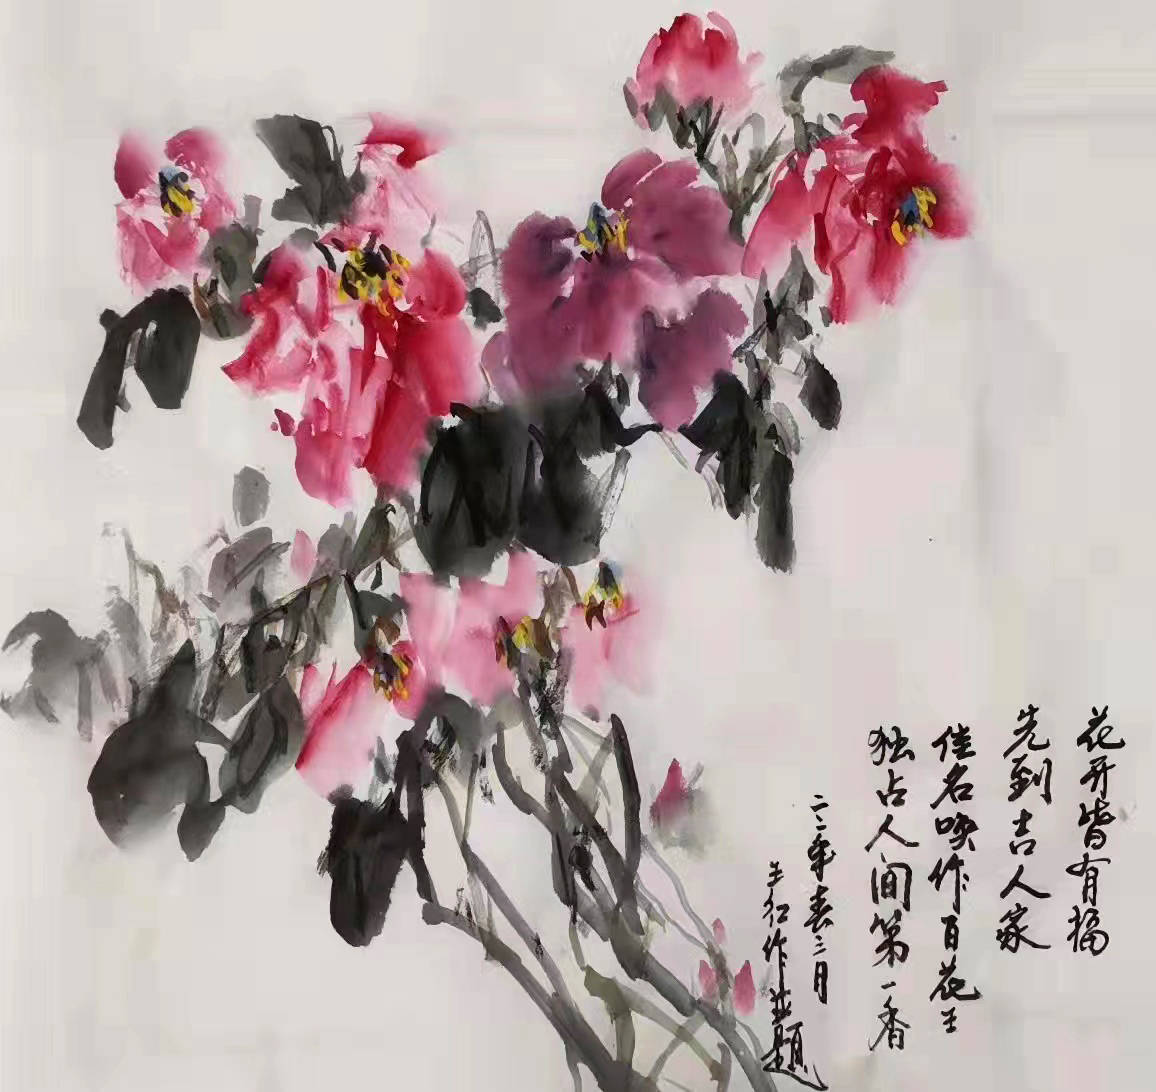 花开皆有福
先到吉人家
佳名唤作百花王
独占人间第一香
二二年春三月
王红作并题